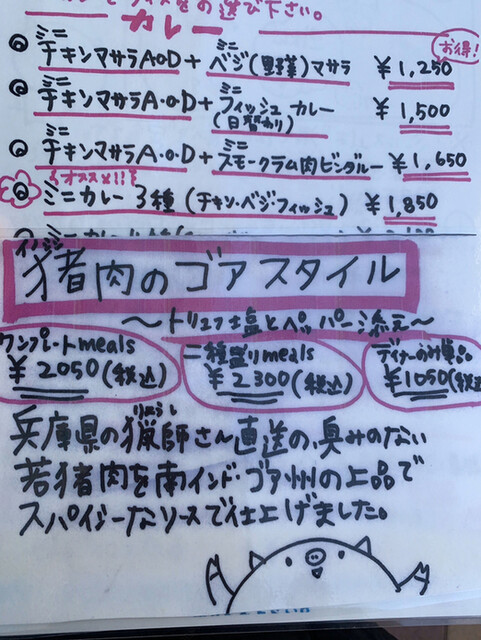 の選び下さい。
カレー
お得!
ミニ ミニ
チキンマサラA・O・D+ベジ(野菜)マサラ ¥1,250
ミニ
チキンマサラA・O・D+フィッシュカレー ¥1,500
(日替わり)
ミニ ミニ
チキンマサラA・O・D+スモークラム肉ビンダルー ¥1,650
オススメ!!
ミニカレー3種(チキン・ベジ・フィッシュ) ¥1,850
イノシシ
猪肉のゴアスタイル
〜トリュフ塩とペッパー添え〜
ワンプレートmeals 二種盛りmeals ディナーのみ単品
¥2050(税込) ¥2300(税込) ¥1050(税込
りょうし
兵庫県の猟師さん直送の臭みのない
若猪肉を南インド・ゴア州の上品で
スパイシーなソースで仕上げました。